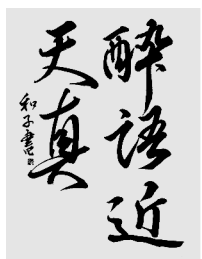 醉語近
天真
和子書